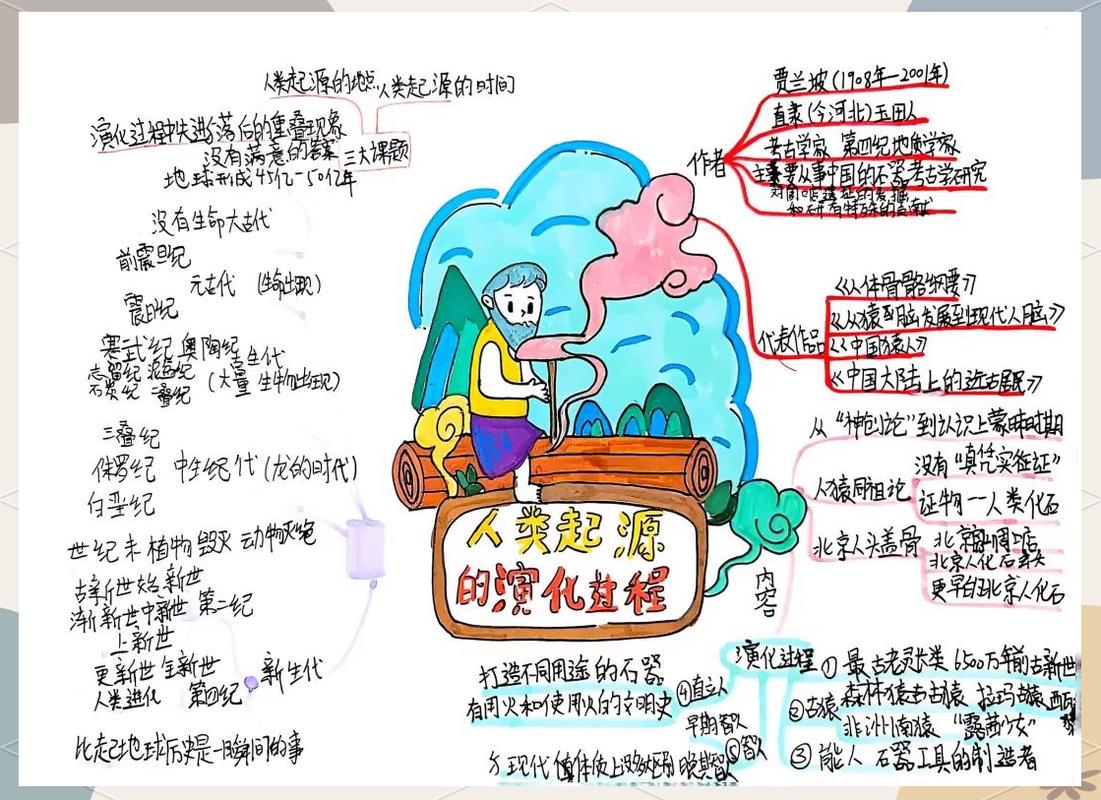 人类起源的地点
人类起源的时间
演化过程中先进落后的重叠现象
没有满意的答案
三大课题
地球形成45亿-50亿年
没有生命太古代
前震旦纪
元古代 (生命出现)
震旦纪
寒武纪 奥陶纪
志留纪 泥盆纪 古生代
石炭纪 二叠纪 (大量生物出现)
三叠纪
侏罗纪 中生纪代 (龙的时代)
白垩纪
世纪末 植物毁灭 动物灭绝
古新世始新世
渐新世中新世 第三纪
上新世
更新世全新世
人类进化 第四纪
新生代
比起地球历史是一瞬间的事
作者
贾兰坡(1908年-2001年)
直隶(今河北)玉田人
考古学家 第四纪地质学家
主要从事中国的石器考古学研究
对周口店遗址的发掘
和研有特殊的贡献
代表作品
《人体骨骼纲要》
《从猿到脑发展到现代人脑》
《中国猿人》
《中国大陆上的远古居民》
人类起源
的演化过程
内容
从“神创论”到认识上蒙昧时期
人猿同祖论
没有“真凭实征证”
证物一人类化石
北京人头盖骨
北京周口店
北京人化石丢失
更早的北京人化石
演化过程
①最古老灵长类 6500万年前古新世
②古猿
森林猿古古猿 拉玛古猿 西
非洲南猿 “露茜少女”
③能人 石器工具的制造者
④直立人
打造不同用途的石器
有用火和使用火的文明史
早期智人
⑤智人
晚期智人